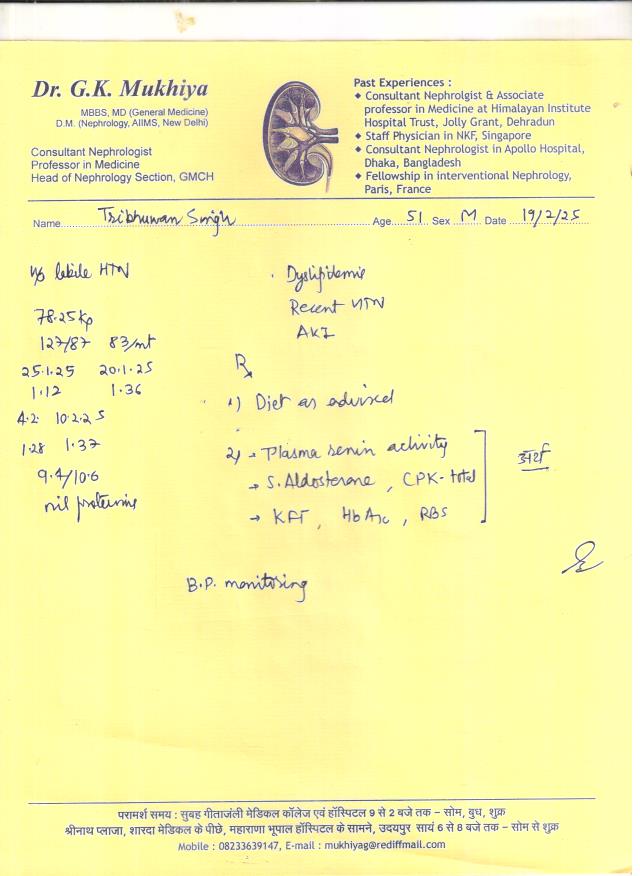 Dr. G.K. Mukhiya
MBBS, MD (General Medicine)
D.M. (Nephrology, AIIMS, New Delhi)
Consultant Nephrologist
Professor in Medicine
Head of Nephrology Section, GMCH
Past Experiences :
◆ Consultant Nephrolgist & Associate
professor in Medicine at Himalayan Institute
Hospital Trust, Jolly Grant, Dehradun
◆ Staff Physician in NKF, Singapore
◆ Consultant Nephrologist in Apollo Hospital,
Dhaka, Bangladesh
◆ Fellowship in interventional Nephrology,
Paris, France
Name Tribhuwan Singh Age 51 Sex M Date 19/2/25
labile HTN
78.25 kg
127/87 83/mt
25.1.25 20.1.25
1.12 1.36
4.2. 10.2.25
1.28 1.37
9.4/10.6
nil
Dyslipidemia
Recent
AKI
Rx
1) Diet as advised
2) → Plasma renin activity
→ S. Aldosterone, CPK-total
→ KFT, HbA1c, RBS
अर्थ
B.P. monitoring
परामर्श समय : सुबह गीताजंली मेडिकल कॉलेज एवं हॉस्पिटल 9 से 2 बजे तक – सोम, बुध, शुक्र
श्रीनाथ प्लाजा, शारदा मेडिकल के पीछे, महाराणा भूपाल हॉस्पिटल के सामने, उदयपुर सायं 6 से 8 बजे तक – सोम से शुक्र
Mobile : 08233639147, E-mail : mukhiyag@rediffmail.com